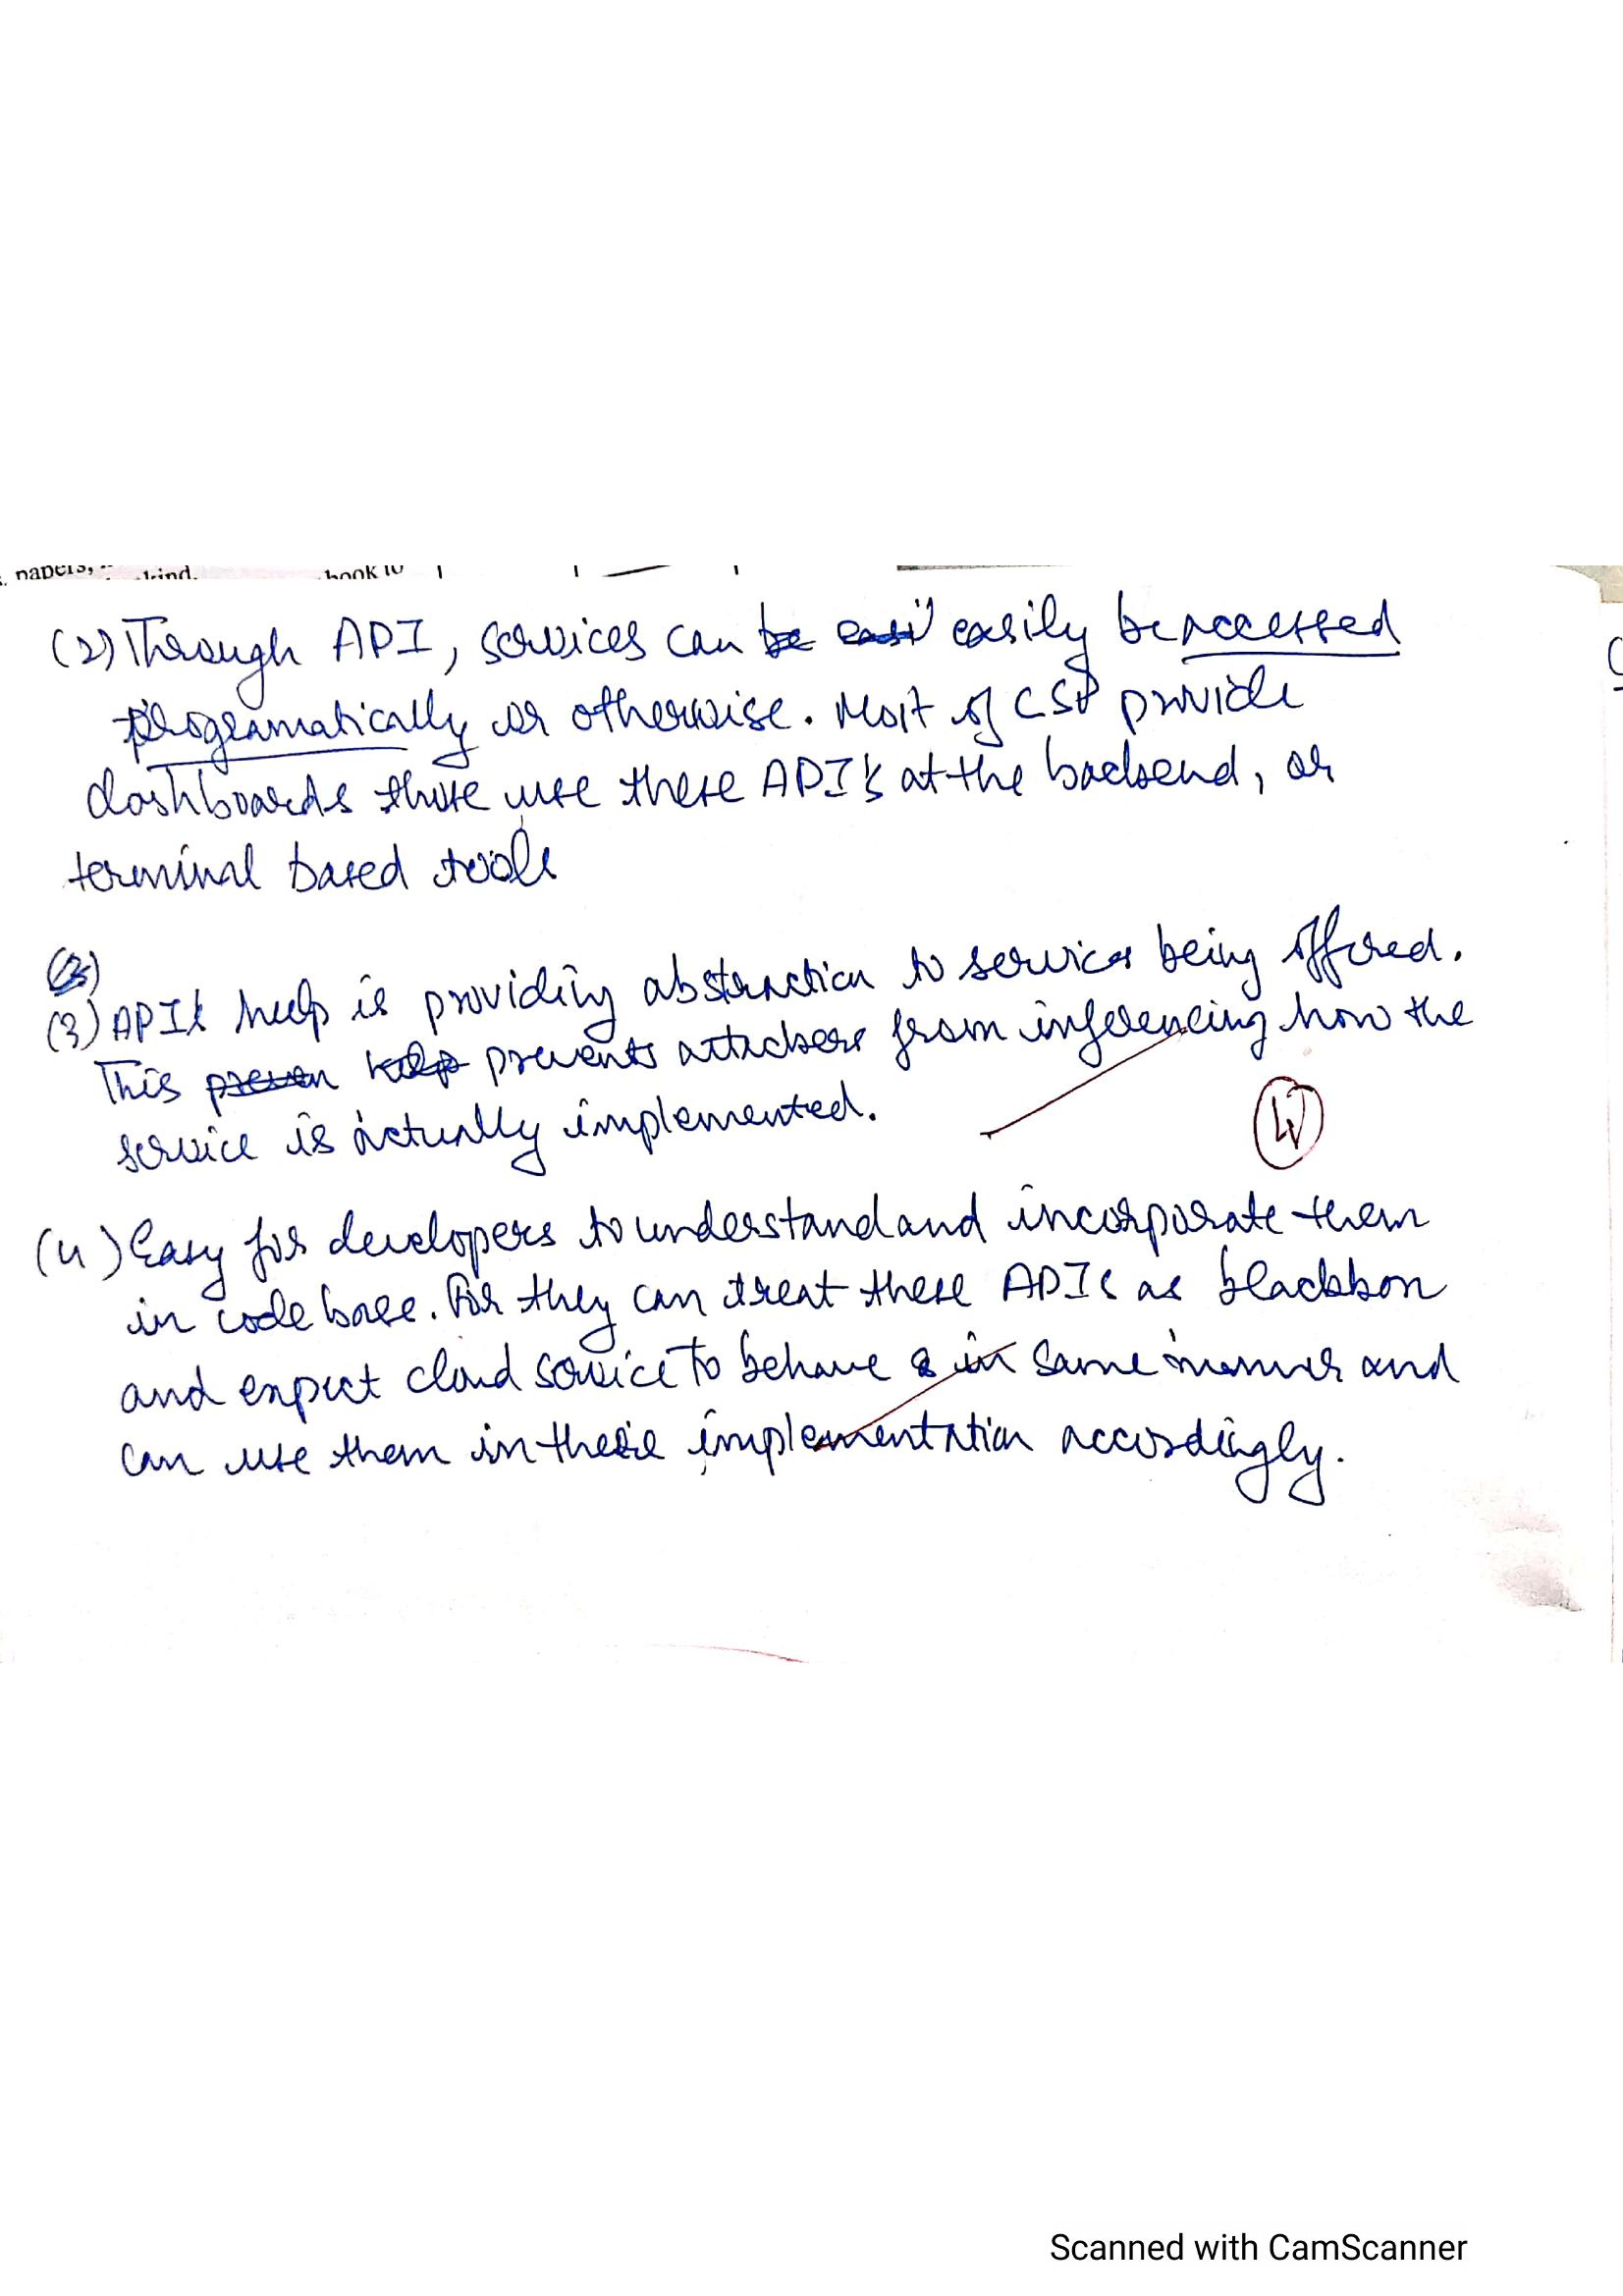 papers, kind. book to
(2) Through API, services can be easi easily be accessed
programatically or otherwise. Most of CSP provide
dashboards those use these API's at the backend, or
terminal based tools
(3) API's help is providing abstraction to services being offered.
This preven help prevents attackers from inferencing how the
service is actually implemented.
(4) Easy for developers to understand and incorporate them
in code base. For they can treat these APIs as blackbox
and expect cloud service to behave in same manner and
can use them in their implementation accordingly.
Scanned with CamScanner